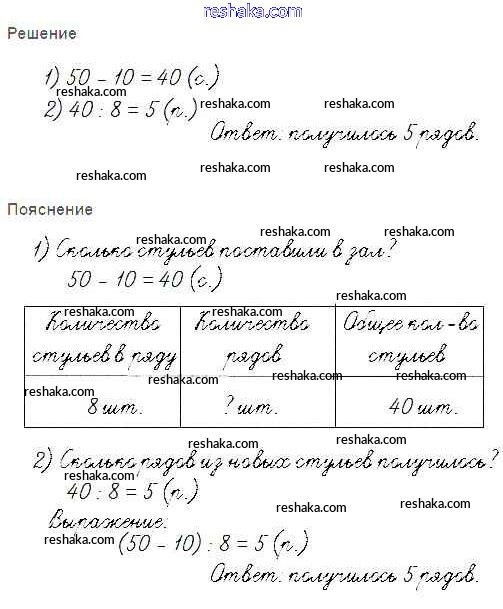 reshaka.com
Решение
1) 50 - 10 = 40 (с.)
reshaka.com
2) 40 : 8 = 5 (п.)
reshaka.com
reshaka.com
Ответ: получилось 5 рядов.
reshaka.com
reshaka.com
reshaka.com
Пояснение
reshaka.com
reshaka.com
reshaka.com
1) Сколько стульев поставили в зал?
50 - 10 = 40 (с.)
reshaka.com
reshaka.com
reshaka.com
Количество стульев в ряду
Количество рядов
Общее кол-во стульев
reshaka.com
reshaka.com
reshaka.com
reshaka.com
8 шт.
? шт.
40 шт.
reshaka.com
reshaka.com
2) Сколько рядов из новых стульев получилось?
reshaka.com
40 : 8 = 5 (п.)
reshaka.com
reshaka.com
Выпажение:
reshaka.com
(50 - 10) : 8 = 5 (п.)
reshaka.com
reshaka.com
Ответ: получилось 5 рядов.